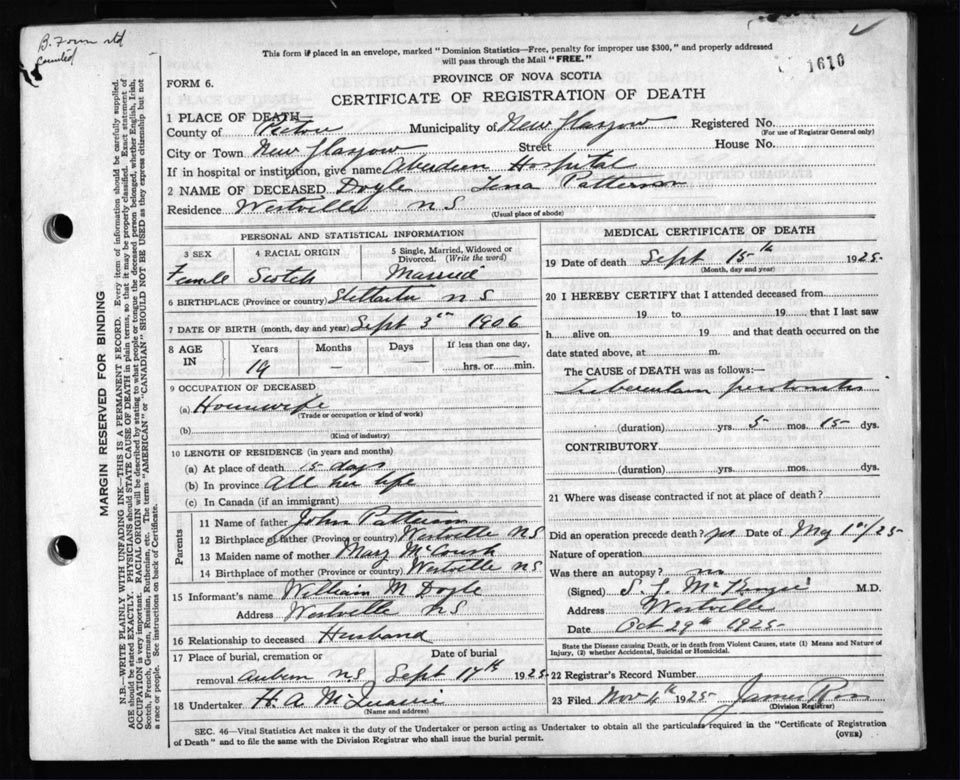 B. Form
This form if placed in an envelope, marked "Dominion Statistics—Free, penalty for improper use $300," and properly addressed
will pass through the Mail "FREE."
1610
FORM 6.
PROVINCE OF NOVA SCOTIA
CERTIFICATE OF REGISTRATION OF DEATH
1 PLACE OF DEATH—
County of Pictou Municipality of New Glasgow Registered No.
(For use of Registrar General only)
City or Town New Glasgow Street House No.
If in hospital or institution, give name Aberdeen Hospital
2 NAME OF DECEASED Doyle Tena Patterson
Residence Westville N S
(Usual place of abode)
PERSONAL AND STATISTICAL INFORMATION
3 SEX 4 RACIAL ORIGIN 5 Single, Married, Widowed or Divorced. (Write the word)
Female Scotch Married
6 BIRTHPLACE (Province or country) Stellarton N S
7 DATE OF BIRTH (month, day and year) Sept 3rd 1906
8 AGE IN Years Months Days If less than one day,
19 — — hrs. or min.
9 OCCUPATION OF DECEASED
(a) Housewife
(Trade or occupation or kind of work)
(b)
(Kind of industry)
10 LENGTH OF RESIDENCE (in years and months)
(a) At place of death 15 days
(b) In province All her life
(c) In Canada (if an immigrant)
Parents
11 Name of father John Patterson
12 Birthplace of father (Province or country) Westville N S
13 Maiden name of mother Mary
14 Birthplace of mother (Province or country) Westville N S
15 Informant's name William M Doyle
Address Westville N S
16 Relationship to deceased Husband
17 Place of burial, cremation or removal Date of burial
Auburn N S Sept 17th 1925
18 Undertaker H. A.
(Name and address)
MEDICAL CERTIFICATE OF DEATH
19 Date of death Sept 15th 1925
(Month, day and year)
20 I HEREBY CERTIFY that I attended deceased from
19 to 19 that I last saw
h alive on 19 and that death occurred on the
date stated above, at m.
The CAUSE of DEATH was as follows:—
Tubercular peritonitis
(duration) yrs. 5 mos. 15 dys.
CONTRIBUTORY
(duration) yrs. mos. dys.
21 Where was disease contracted if not at place of death?
Did an operation precede death? yes Date of May 1st/25
Nature of operation
Was there an autopsy? no
(Signed) S. J. McKenzie M.D.
Address Westville
Date Oct 29th 1925
State the Disease causing Death, or in death from Violent Causes, state (1) Means and Nature of
Injury, (2) whether Accidental, Suicidal or Homicidal.
22 Registrar's Record Number
23 Filed Nov 4th 1925 James Ross
(Division Registrar)
SEC. 46—Vital Statistics Act makes it the duty of the Undertaker or person acting as Undertaker to obtain all the particulars required in the "Certificate of Registration
of Death" and to file the same with the Division Registrar who shall issue the burial permit.
(OVER)
MARGIN RESERVED FOR BINDING
N.B.—WRITE PLAINLY WITH UNFADING INK—THIS IS A PERMANENT RECORD. Every item of information should be carefully supplied.
AGE should be stated EXACTLY. PHYSICIANS should STATE CAUSE OF DEATH in plain terms, so that it may be properly classified. Exact statement of
OCCUPATION is very important. RACIAL ORIGIN will be described by stating to what people or tongue the deceased person belonged, whether English, Irish,
Scotch, French, German, Russian, Ruthenian, etc. The terms "AMERICAN" or "CANADIAN" SHOULD NOT BE USED as they express citizenship but not
a race or people. See instructions on back of Certificate.